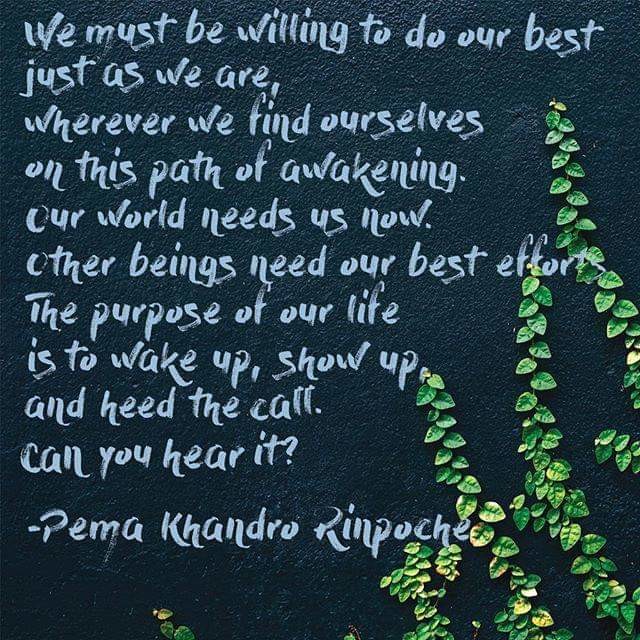 We must be willing to do our best
just as we are,
wherever we find ourselves
on this path of awakening.
Our world needs us now.
Other beings need our best efforts.
The purpose of our life
is to wake up, show up,
and heed the call.
Can you hear it?
-Pema Khandro Rinpoche